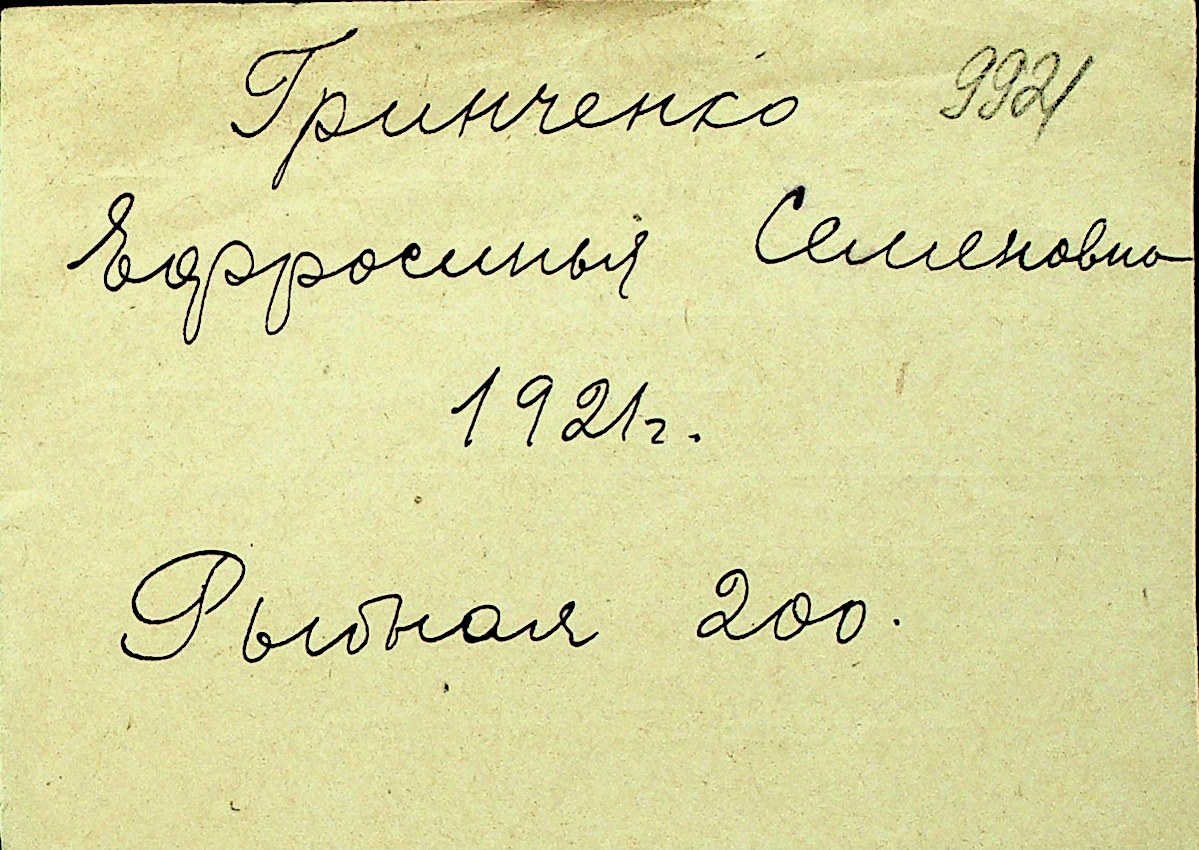 Гринченко 9921
Ефросинья Семеновна
1921г.
Рыбная 200.